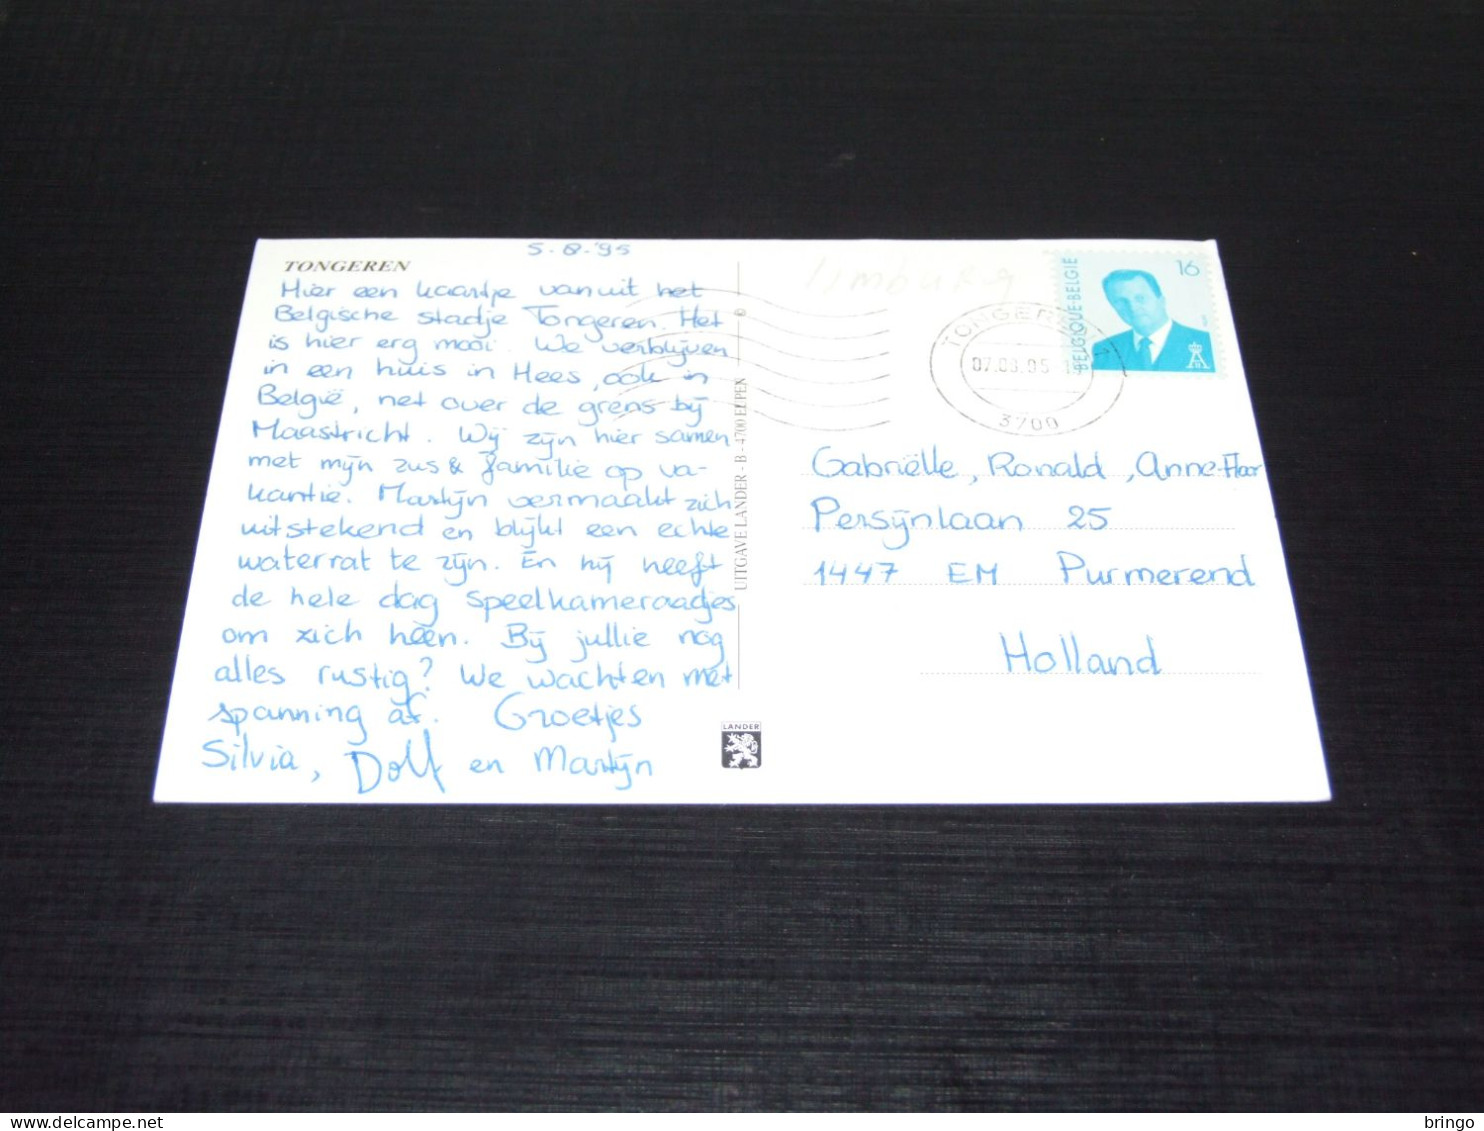 5.8.'95
TONGEREN
Hier een kaartje vanuit het
Belgische stadje Tongeren. Het
is hier erg mooi. We verblijven
in een huis in Hees, ook in
België, net over de grens bij
Maastricht. Wij zijn hier samen
met mijn zus & familie op va-
kantie. Martijn vermaakt zich
uitstekend en blijkt een echte
waterrat te zijn. En hij heeft
de hele dag speelkameraadjes
om zich heen. Bij jullie nog
alles rustig? We wachten met
spanning af. Groetjes
Silvia, Dolf en Martijn
UITGAVE LANDER - B - 4700 EUPEN ©
LANDER
limburg
16
BELGIQUE-BELGIE
TONGEREN 1
07.08.95
3700
Gabriëlle, Ronald, Anne-Floor
Persijnlaan 25
1447 EM Purmerend
Holland
bringo